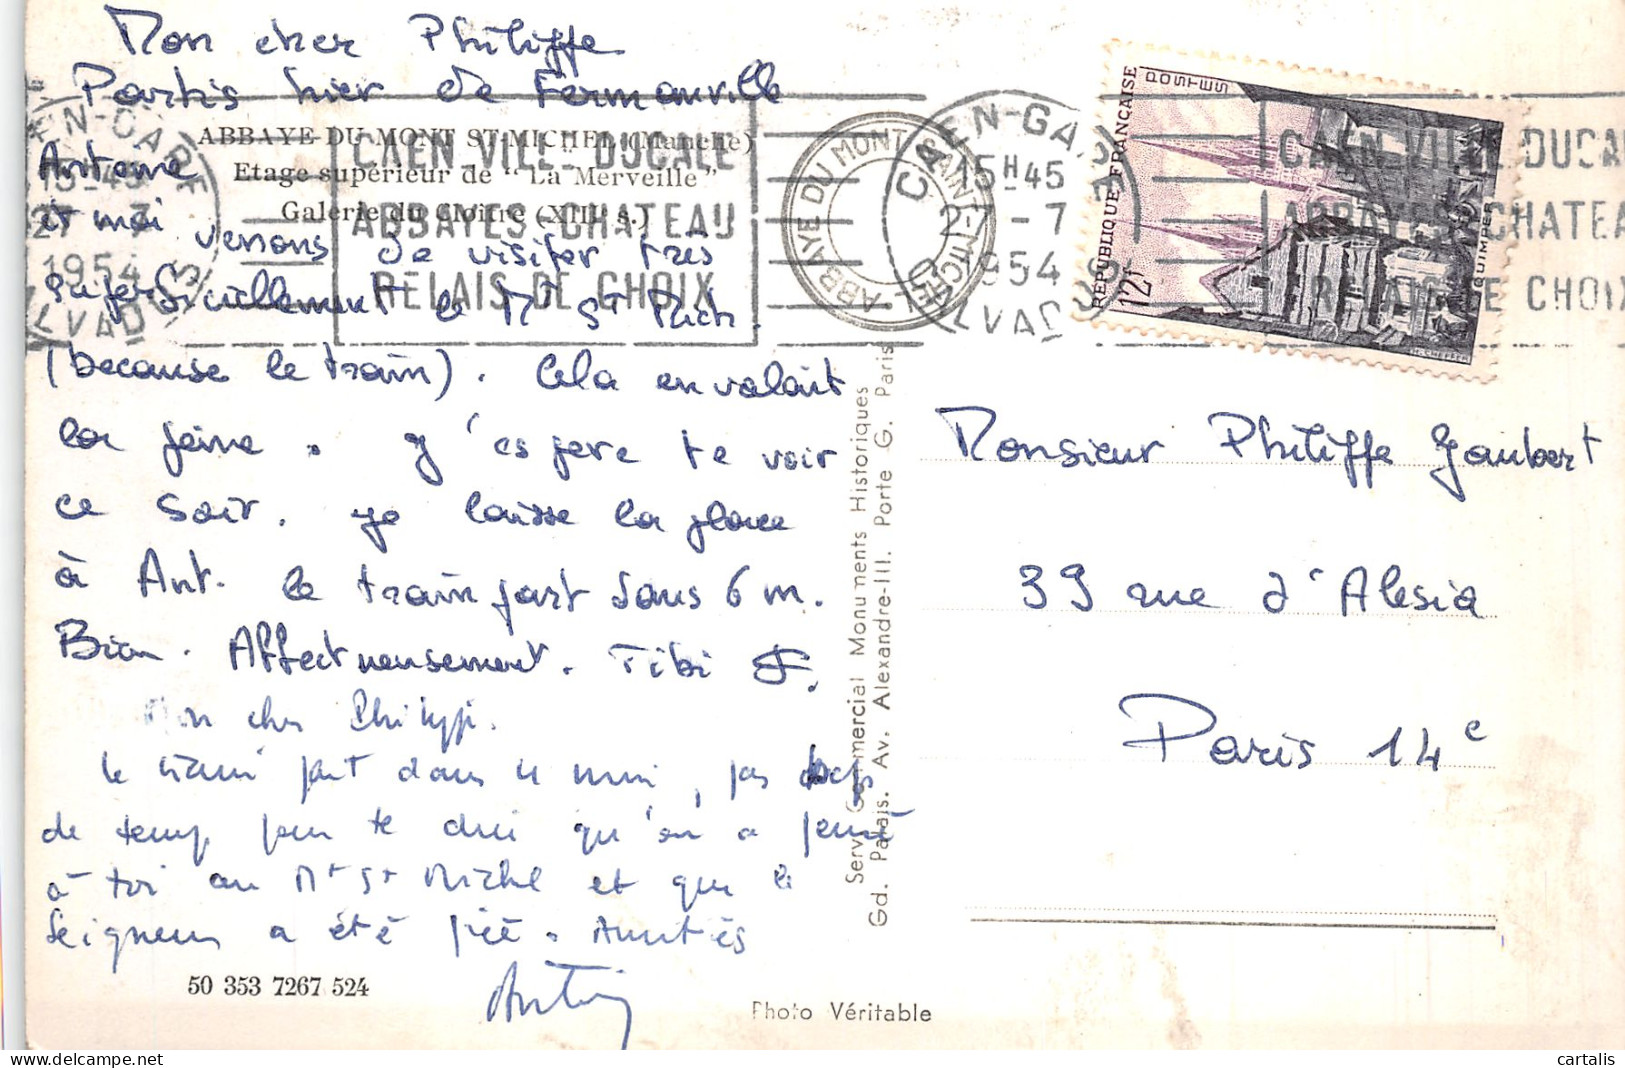 Mon cher Philippe
Partis hier de Fermanville
Antoine
et moi venons de visiter très
superficiellement le Mt St Mich.
(because le train). Cela en valait
la peine. J'espère te voir
ce soir. Je laisse la place
à Ant. le train part dans 6 m.
Bien. Affectueusement. Tibi F.
Mon cher Philippe.
le train part dans 4 min, pas
de temps pour te dire qu'on a pensé
à toi au Mt St Michel et que le
Seigneur a été prié. Amitiés
Antoine
ABBAYE DU MONT ST-MICHEL (Manche)
Etage supérieur de "La Merveille"
Galerie du Cloître (XIIIe s.)
EN-GARE
15-45
27 -7
1954
LVAD
CAEN VILLE DUCALE
ABBAYES-CHATEAU
RELAIS DE CHOIX
ABBAYE DU MONT SAINT-MICHEL
CAEN-GARE
15H45
27-7
1954
CALVADOS
RÉPUBLIQUE FRANÇAISE
POSTES
12F
QUIMPER
H. CHEFFER
CAEN VILLE DUCA
ABBAYES-CHATEA
RELAIS DE CHOIX
Monsieur Philippe Jaubert
39 rue d'Alesia
Paris 14e
Service Commercial Monuments Historiques
Gd. Palais. Av. Alexandre-III. Porte G. Paris
50 353 7267 524
Photo Véritable
cartalis